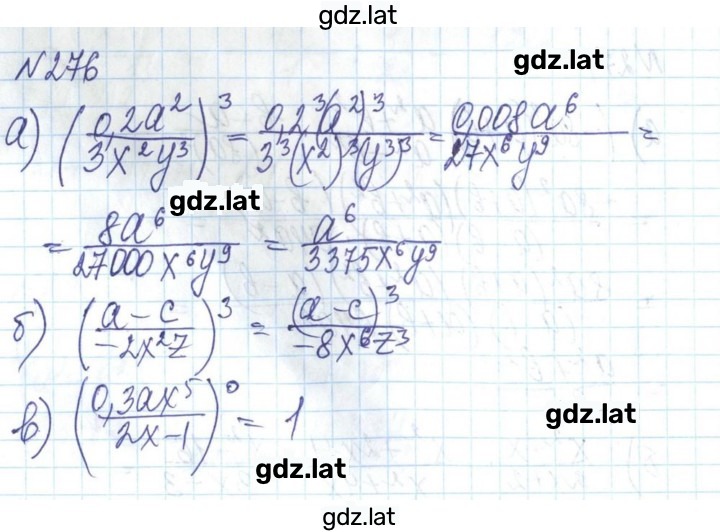 gdz.lat
gdz.lat
№276
а) (0,2a²/3x²y³)³ = 0,2³(a²)³/3³(x²)³(y³)³ = 0,008a⁶/27x⁶y⁹ =
gdz.lat
= 8a⁶/27000x⁶y⁹ = a⁶/3375x⁶y⁹
б) (a-c/-2x²z)³ = (a-c)³/-8x⁶z³
в) (0,3ax⁵/2x-1)⁰ = 1
gdz.lat
gdz.lat
gdz.lat